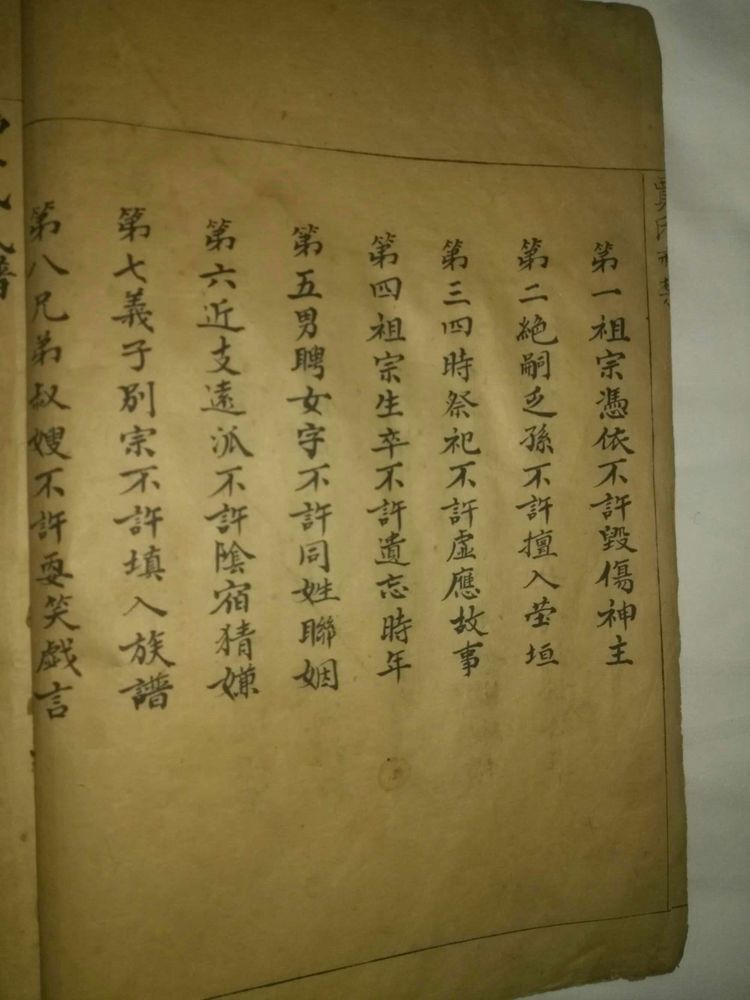 第一祖宗憑依不許毀傷神主
第二絶嗣乏孫不許擅入塋垣
第三四時祭祀不許虛應故事
第四祖宗生卒不許遺忘時年
第五男聘女字不許同姓聯姻
第六近支遠泒不許陰宿猜嫌
第七義子別宗不許填入族譜
第八兄弟叔嫂不許耍笑戯言
譜